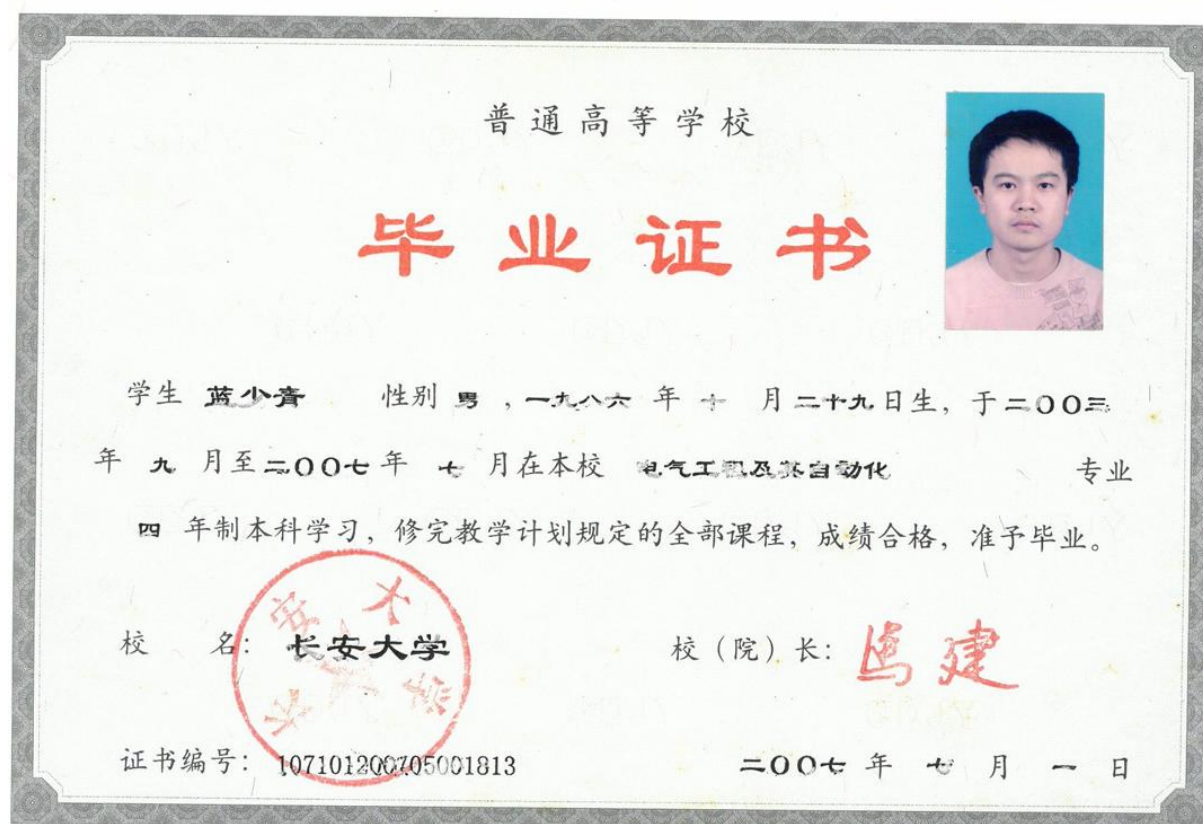 普通高等学校
毕业证书
学生 蓝少青 性别 男 ，一九八六 年 十 月 二十九日生，于二00三
年 九 月至二00七年 七 月在本校 电气工程及其自动化 专业
四 年制本科学习，修完教学计划规定的全部课程，成绩合格，准予毕业。
长安大学
校 名：长安大学 校（院）长：
建
证书编号：107101200705001813 二00七 年 七 月 一 日